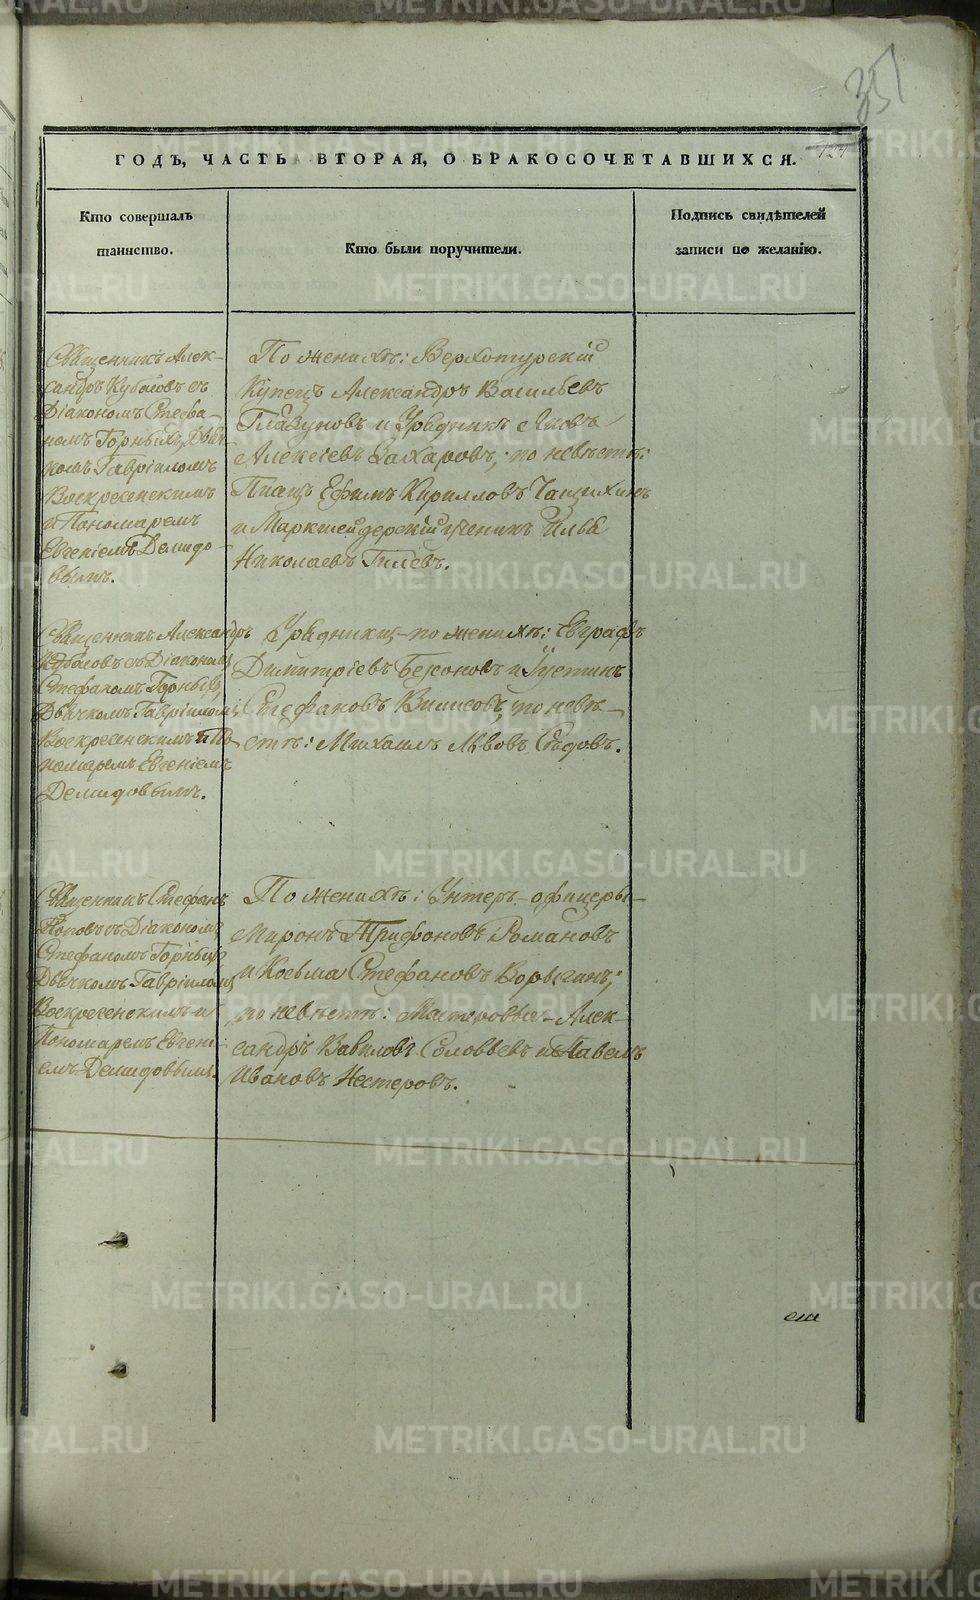 351
124
ГОДЪ, ЧАСТЬ ВТОРАЯ, О БРАКОСОЧЕТАВШИХСЯ.
Кто совершалъ
таинство.
Кто были поручители.
Подпись свидѣтелей
записи по желанію.
Священникъ Алек-
сандръ Кубасовъ съ
Діакономъ Стефа-
номъ Горныхъ, Дьяч-
комъ Гавріиломъ
Воскресенскимъ
и Пономаремъ
Евгеніемъ Демидо-
вымъ.
По женихѣ: Верхотурскій
Купецъ Александръ Васильевъ
Глазуновъ и Урядникъ Яковъ
Алексіевъ Захаровъ; по невѣстѣ:
Писецъ Ефимъ Кирилловъ Чащихинъ
и Маркшейдерскій ученикъ Илья
Николаевъ Гилевъ.
Священникъ Александръ
Кубасовъ съ Діакономъ
Стефаномъ Горныхъ,
Дьячкомъ Гавріиломъ
Воскресенскимъ и По-
номаремъ Евгеніемъ
Демидовымъ.
Урядники - по женихѣ: Евграфъ
Димитріевъ и Густинъ
Стефановъ по невѣ-
стѣ: Михаилъ Львовъ Сѣдовъ.
Священникъ Стефанъ
Поповъ съ Діакономъ
Стефаномъ Горныхъ
Дьячкомъ Гавріиломъ
Воскресенскимъ и
Пономаремъ Евгені-
емъ Демидовымъ.
По женихѣ: Унтеръ-офицеры-
Миронъ Трифоновъ Романовъ
и Косьма Стефановъ
по невѣстѣ: Мастеровые - Алек-
сандръ Вавиловъ Соловьевъ и Павелъ
Ивановъ Нестеровъ.
METRIKI.GASO-URAL.RU